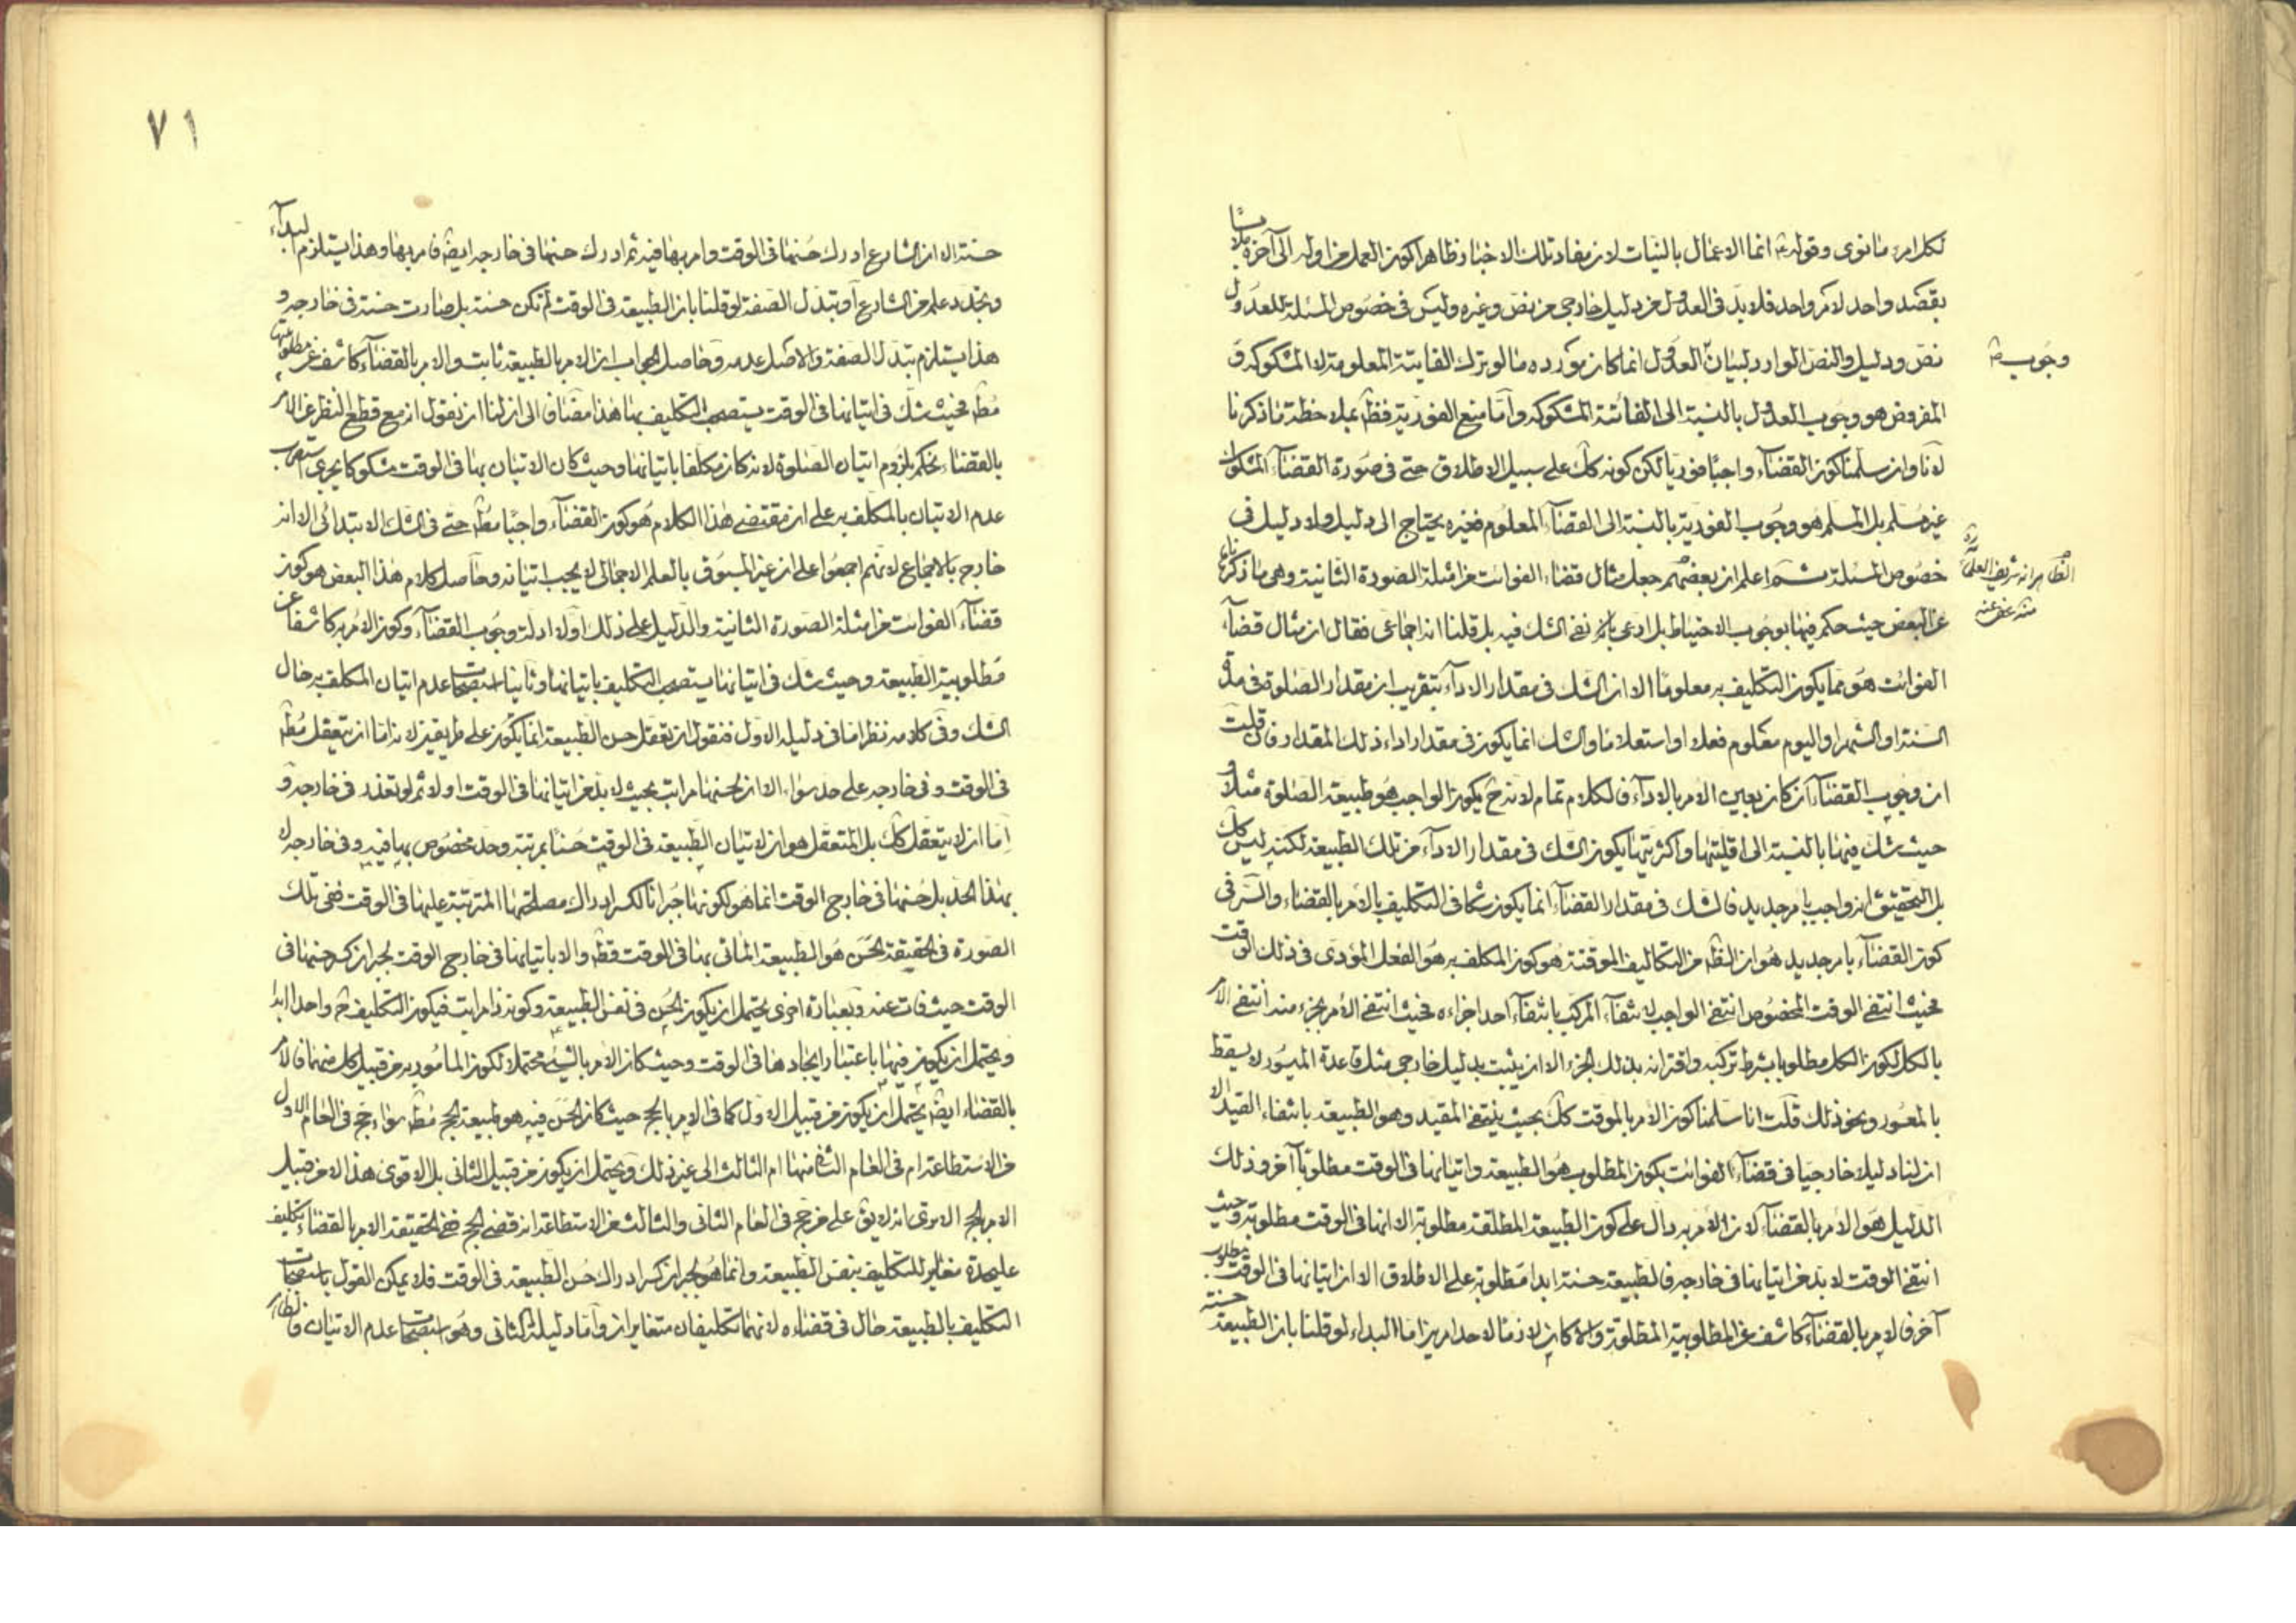 لكل امرء ما نوى وقوله ع انما الاعمال بالنيات لان مفاد تلك الاخبار ظاهرا كون العمل من اوله الى آخره
بقصد واحد لامر واحد فلا بد فى العدول من دليل خارجى من نص وغيره وليس فى خصوص المسئلة للعدول
نص ودليل والنص الوارد لبيان العدول انما كان مورده ما لو ترك الفايتة المعلومة لا المشكوكة و
وجوب
المفروض هو وجوب العدول بالنسبة الى الفائتة المشكوكه واما منع الفورية فظ بملاحظة ما ذكرنا
لانا وان سلمنا كون القضاء واجبا فوريا لكن كونه كك على سبيل الاطلاق حتى فى صورة القضاء المشكوك
غير مسلم بل المسلم هو وجوب الفورية بالنسبة الى القضاء المعلوم فغيره يحتاج الى دليل ولا دليل فى
خصوص المسئلة ثم اعلم ان بعضهم جعل مثال قضاء الفوائت من امثلة الصورة الثانية وهى ما ذكرناه
الظاهر انه شريف العلماء ره
منه عفى عنه
عن البعض حيث حكم فيها بوجوب الاحتياط بل ادعى نفى الشك فيه بل قلنا انه اجماعى فقال ان مثال قضاء
الفوائت هو مما يكون التكليف به معلوما الا ان الشك فى مقدار الاداء بتقريب ان مقدار الصلوة فى مدة
السنة او الشهر او اليوم معلوم فعلا او استعلاما والشك انما يكون فى مقدار اداء ذلك المقدار فان قلت
ان وجوب القضاء ان كان بعين الامر بالاداء فالكلام تمام لانه ح يكون الواجب هو طبيعة الصلوة مثلا و
حيث شك فيها بالنسبة الى اقليتها واكثريتها يكون الشك فى مقدار الاداء من تلك الطبيعة لكنه ليس كك
بل التحقيق انه واجب بامر جديد فالشك فى مقدار القضاء انما يكون شكا فى التكليف بالامر بالقضاء والسر فى
كون القضاء بامر جديد هو ان الظ من التكاليف الموقتة هو كون المكلف به هو الفعل المؤدى فى ذلك الوقت
فحيث انتفى الوقت المخصوص انتفى الواجب لانتفاء المركب بانتفاء احد اجزاءه فحيث انتفى الامر بجزء منه انتفى الامر
بالكل لكون الكل مطلوبا بشرط تركبه واقترانه بذلك الجزء الا ان يثبت بدليل خارجى مثل قاعدة الميسور لا يسقط
بالمعسور ونحو ذلك قلت انا سلمنا كون الامر بالموقت كك بحيث ينتفى المقيد وهو الطبيعة بانتفاء القيد الا
ان لنا دليلا خارجيا فى قضاء الفوائت بكون المطلوب هو الطبيعة واتيانها فى الوقت مطلوبا آخر وذلك
الدليل هو الامر بالقضاء لان الامر به دال على كون الطبيعة المطلقة مطلوبة الا انها فى الوقت مطلوبة وحيث
انتفى الوقت لا بد من اتيانها فى خارجه فالطبيعة حسنة ابدا مطلوبة على الاطلاق الا ان اتيانها فى الوقت مطلوب
آخر فالامر بالقضاء كاشف عن المطلوبية المطلوبة والا كان لازما لاحد امرين اما البداء لو قلنا بان الطبيعة حسنة
٧١
حسنة الا ان الشارع ادرك حسنها فى الوقت وامر بها فيه ثم ادرك حسنها فى خارجه ايض فامر بها وهذا يستلزم البداء
وتجدد علم من الشارع او تبدل الصفة لو قلنا بان الطبيعة فى الوقت لم تكن حسنة بل صارت حسنة فى خارجه و
هذا يستلزم تبدل الصفة والاصل عدمه وحاصل الجواب ان الامر بالطبيعة ثابت والامر بالقضاء كاشف عن مطلوبيتها
مط فحيث شك فى اتيانها فى الوقت يستصحب التكليف بها هذا مضافا الى ان لنا ان نقول ان مع قطع النظر عن الامر
بالقضاء نحكم بلزوم اتيان الصلوة لانه كان مكلفا باتيانها وحيث كان الاتيان بها فى الوقت مشكوكا يجرى استصحاب
عدم الاتيان بالمكلف به على ان مقتضى هذا الكلام هو كون القضاء واجبا مط حتى فى الشك الابتدائى الا انه
خارج بالاجماع لانهم اجمعوا على ان غير المسبوق بالعلم الاجمالى لا يجب اتيانه وحاصل كلام هذا البعض هو كون
قضاء الفوائت من امثلة الصورة الثانية والدليل على ذلك اولا ادلة وجوب القضاء وكون الامر به كاشفا عن
مطلوبية الطبيعة وحيث شك فى اتيانها يستصحب التكليف باتيانها وثانيا استصحاب عدم اتيان المكلف به حال
الشك وفى كلامه نظر اما فى دليله الاول فنقول ان تعقل حسن الطبيعة انما يكون على طريقين لانه اما ان يتعقل مط
فى الوقت وفى خارجه على حد سواء الا ان لحسنها مراتب بحيث لا بد من اتيانها فى الوقت اولا ثم لو تعذر فى خارجه و
اما ان لا يتعقل كك بل المتعقل هو ان لاتيان الطبيعة فى الوقت حسنا بمرتبة وحد مخصوص بها فيه وفى خارجه لا
بهذا الحد بل حسنها فى خارج الوقت انما هو لكونها جبرانا لكسر ادراك مصلحتها المترتبة عليها فى الوقت ففى تلك
الصورة فى الحقيقة الحسن هو الطبيعة الماتى بها فى الوقت فقط والا باتيانها فى خارج الوقت لجبران كسر حسنها فى
الوقت حيث فات عنه وبعبارة اخرى يحتمل ان يكون الحسن فى نفس الطبيعة وكونه ذا مراتب فيكون التكليف ح واحدا ابدا
ويحتمل ان يكون فيها باعتبار ايجادها فى الوقت وحيث كان الامر بالشئ محتملا لكون المامور به من قبيل كل منهما فالامر
بالقضاء ايض يحتمل ان يكون من قبيل الاول كما فى الامر بالحج حيث كان الحسن فيه هو طبيعة الحج مط سواء حج فى العام الاول
من الاستطاعة ام فى العام الثانى منها ام الثالث الى غير ذلك ويحتمل ان يكون من قبيل الثانى بل الاقوى هذا لا من قبيل
الامر بالحج الا ترى انه لا يق على من حج فى العام الثانى والثالث من الاستطاعة انه قضى الحج ففى الحقيقة الامر بالقضاء تكليف
عليحدة مغاير للتكليف بنفس الطبيعة وانما هو لجبران كسر ادراك حسن الطبيعة فى الوقت فلا يمكن القول باستصحاب
التكليف بالطبيعة حال فى قضاءه لانهما تكليفان متغايران واما دليله الثانى وهو استصحاب عدم الاتيان